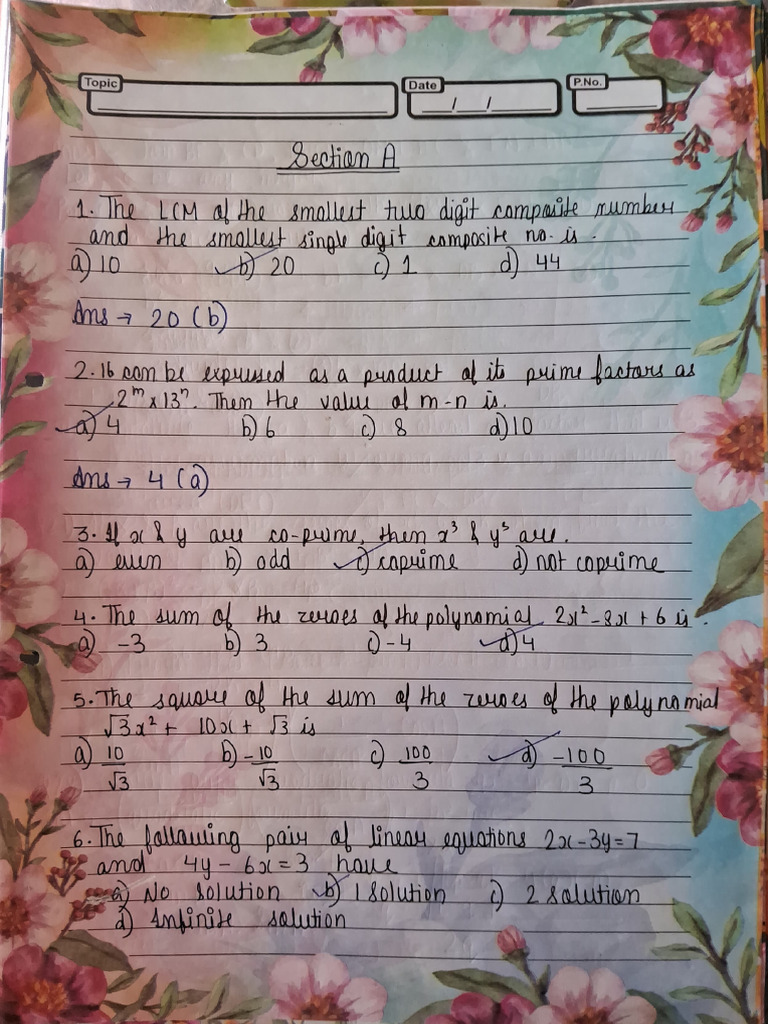 Topic
Date
P.No.
/ /
Section A
1. The LCM of the smallest two digit composite number
and the smallest single digit composite no. is .
a) 10 b) 20 c) 1 d) 44
Ans → 20 (b)
2. 16 can be expressed as a product of its prime factors as
2ᵐ × 13ⁿ. Then the value of m-n is.
a) 4 b) 6 c) 8 d) 10
Ans → 4 (a)
3. If x & y are co-prime, then x³ & y³ are.
a) even b) odd c) coprime d) not coprime
4. The sum of the zeroes of the polynomial 2x² - 8x + 6 is .
a) -3 b) 3 c) -4 d) 4
5. The square of the sum of the zeroes of the polynomial
√3x² + 10x + √3 is
a) 10/√3 b) -10/√3 c) 100/3 d) -100/3
6. The following pair of linear equations 2x - 3y = 7
and 4y - 6x = 3 have
a) No solution b) 1 solution c) 2 solution
d) Infinite solution